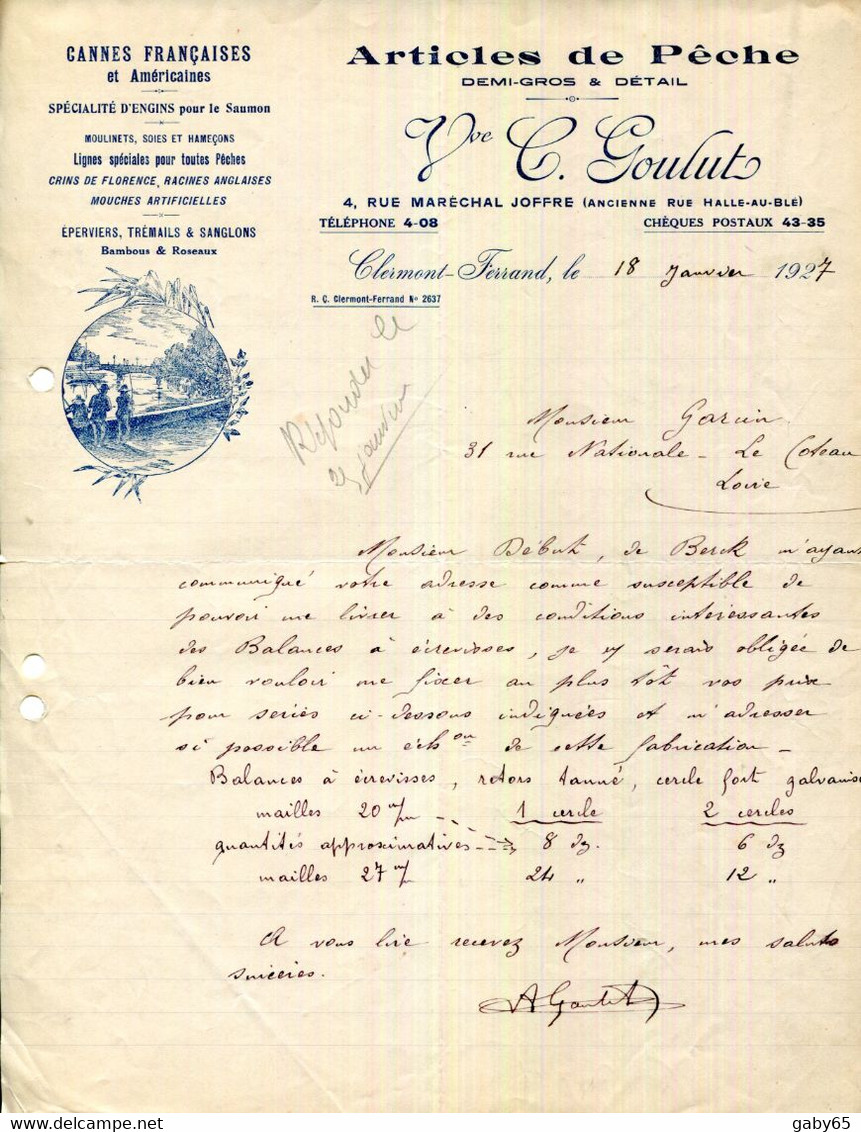 CANNES FRANÇAISES
et Américaines
SPÉCIALITÉ D'ENGINS pour le Saumon
MOULINETS, SOIES ET HAMEÇONS
Lignes spéciales pour toutes Pêches
CRINS DE FLORENCE, RACINES ANGLAISES
MOUCHES ARTIFICIELLES
ÉPERVIERS, TRÉMAILS & SANGLONS
Bambous & Roseaux
Articles de Pêche
DEMI-GROS & DÉTAIL
Vve C. Goulut
4, RUE MARÉCHAL JOFFRE (ANCIENNE RUE HALLE-AU-BLÉ)
TÉLÉPHONE 4-08
CHÈQUES POSTAUX 43-35
Clermont-Ferrand, le 18 Janvier 1927
R. C. Clermont-Ferrand No 2637
Répondu le
janvier
Monsieur Garcin
31 rue Nationale - Le Coteau
Loire
Monsieur Début, de Berck m'ayant
communiqué votre adresse comme susceptible de
pouvoir me livrer à des conditions intéressantes
des Balances à écrevisses, je vs serais obligée de
bien vouloir me fixer au plus tôt vos prix
pour series ci-dessous indiquées et m'adresser
si possible un échon de cette fabrication -
Balances à écrevisses, retors tanné, cercle fort galvanisé
mailles 20 m/m 1 cercle 2 cercles
quantités approximatives 8 dz. 6 dz
mailles 27 m/m 24 " 12 "
A vous lire recevez Monsieur, mes saluts
sincères.
gaby65